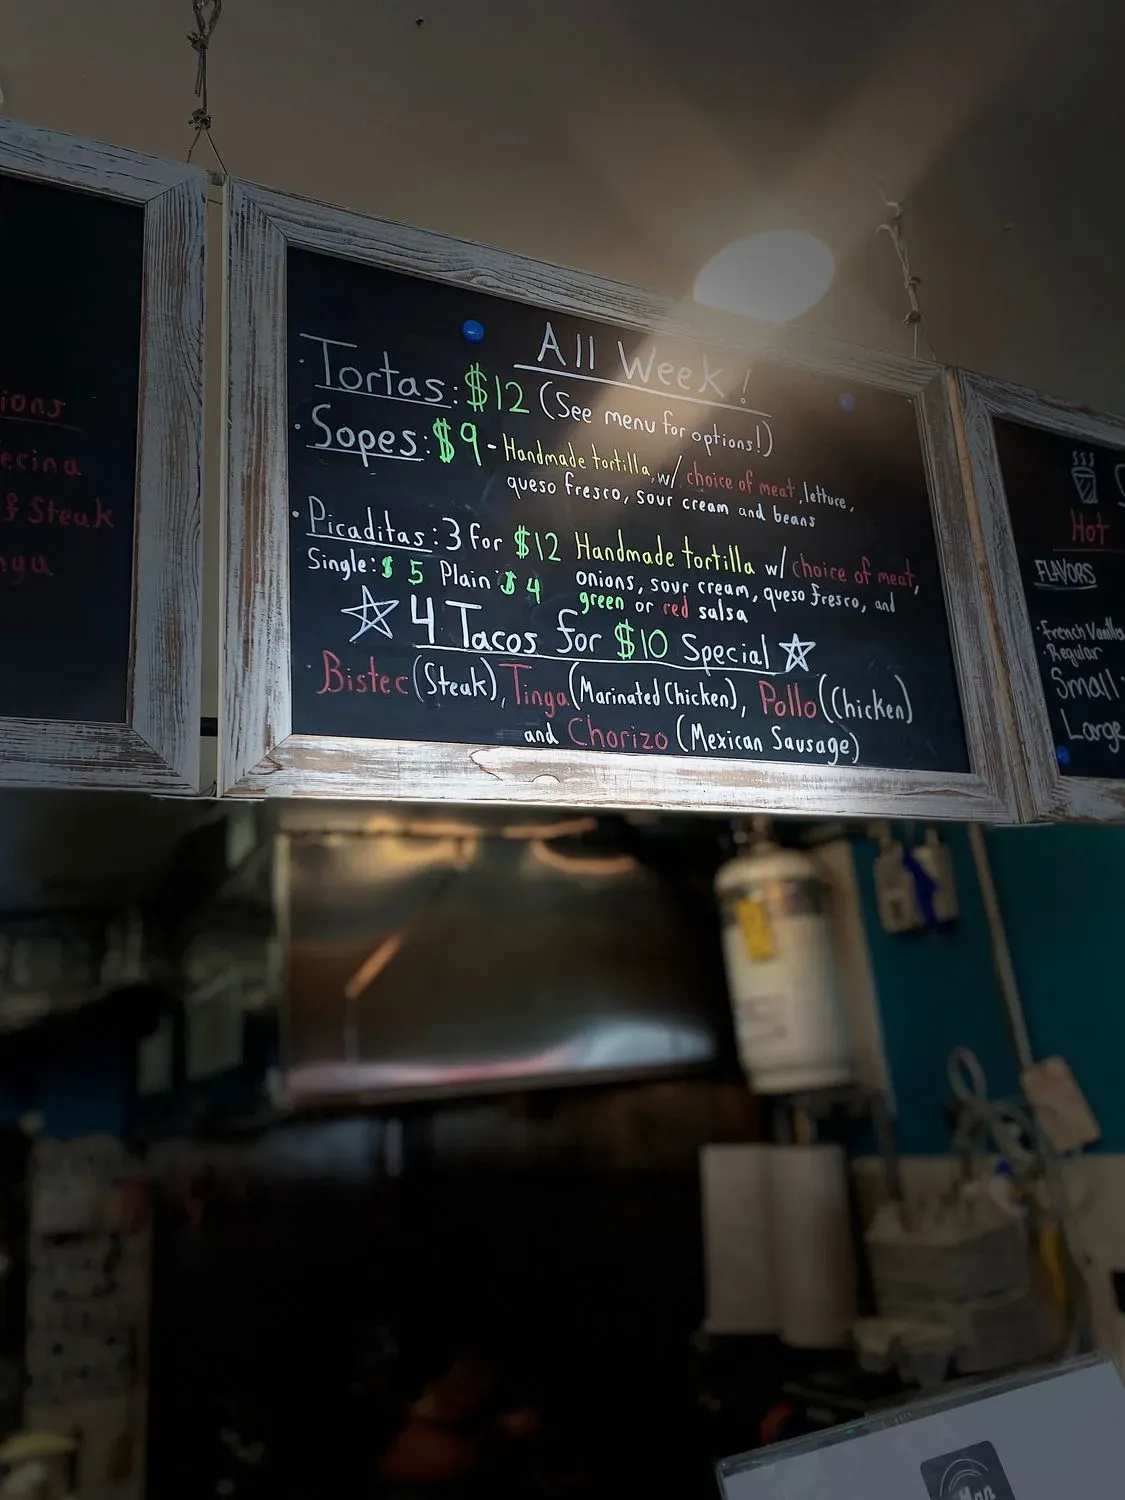 All Week!
Tortas: $12 (See menu for options!)
Sopes: $9 - Handmade tortilla, w/ choice of meat, lettuce,
queso fresco, sour cream and beans
Picaditas: 3 for $12 Handmade tortilla w/ choice of meat,
Single: $5 Plain: $4 onions, sour cream, queso fresco, and
green or red salsa
4 Tacos for $10 Special
Bistec (Steak), Tinga (Marinated Chicken), Pollo (Chicken)
and Chorizo (Mexican Sausage)
Steak
Hot
FLAVORS
French Vanilla
Regular
Small
Large